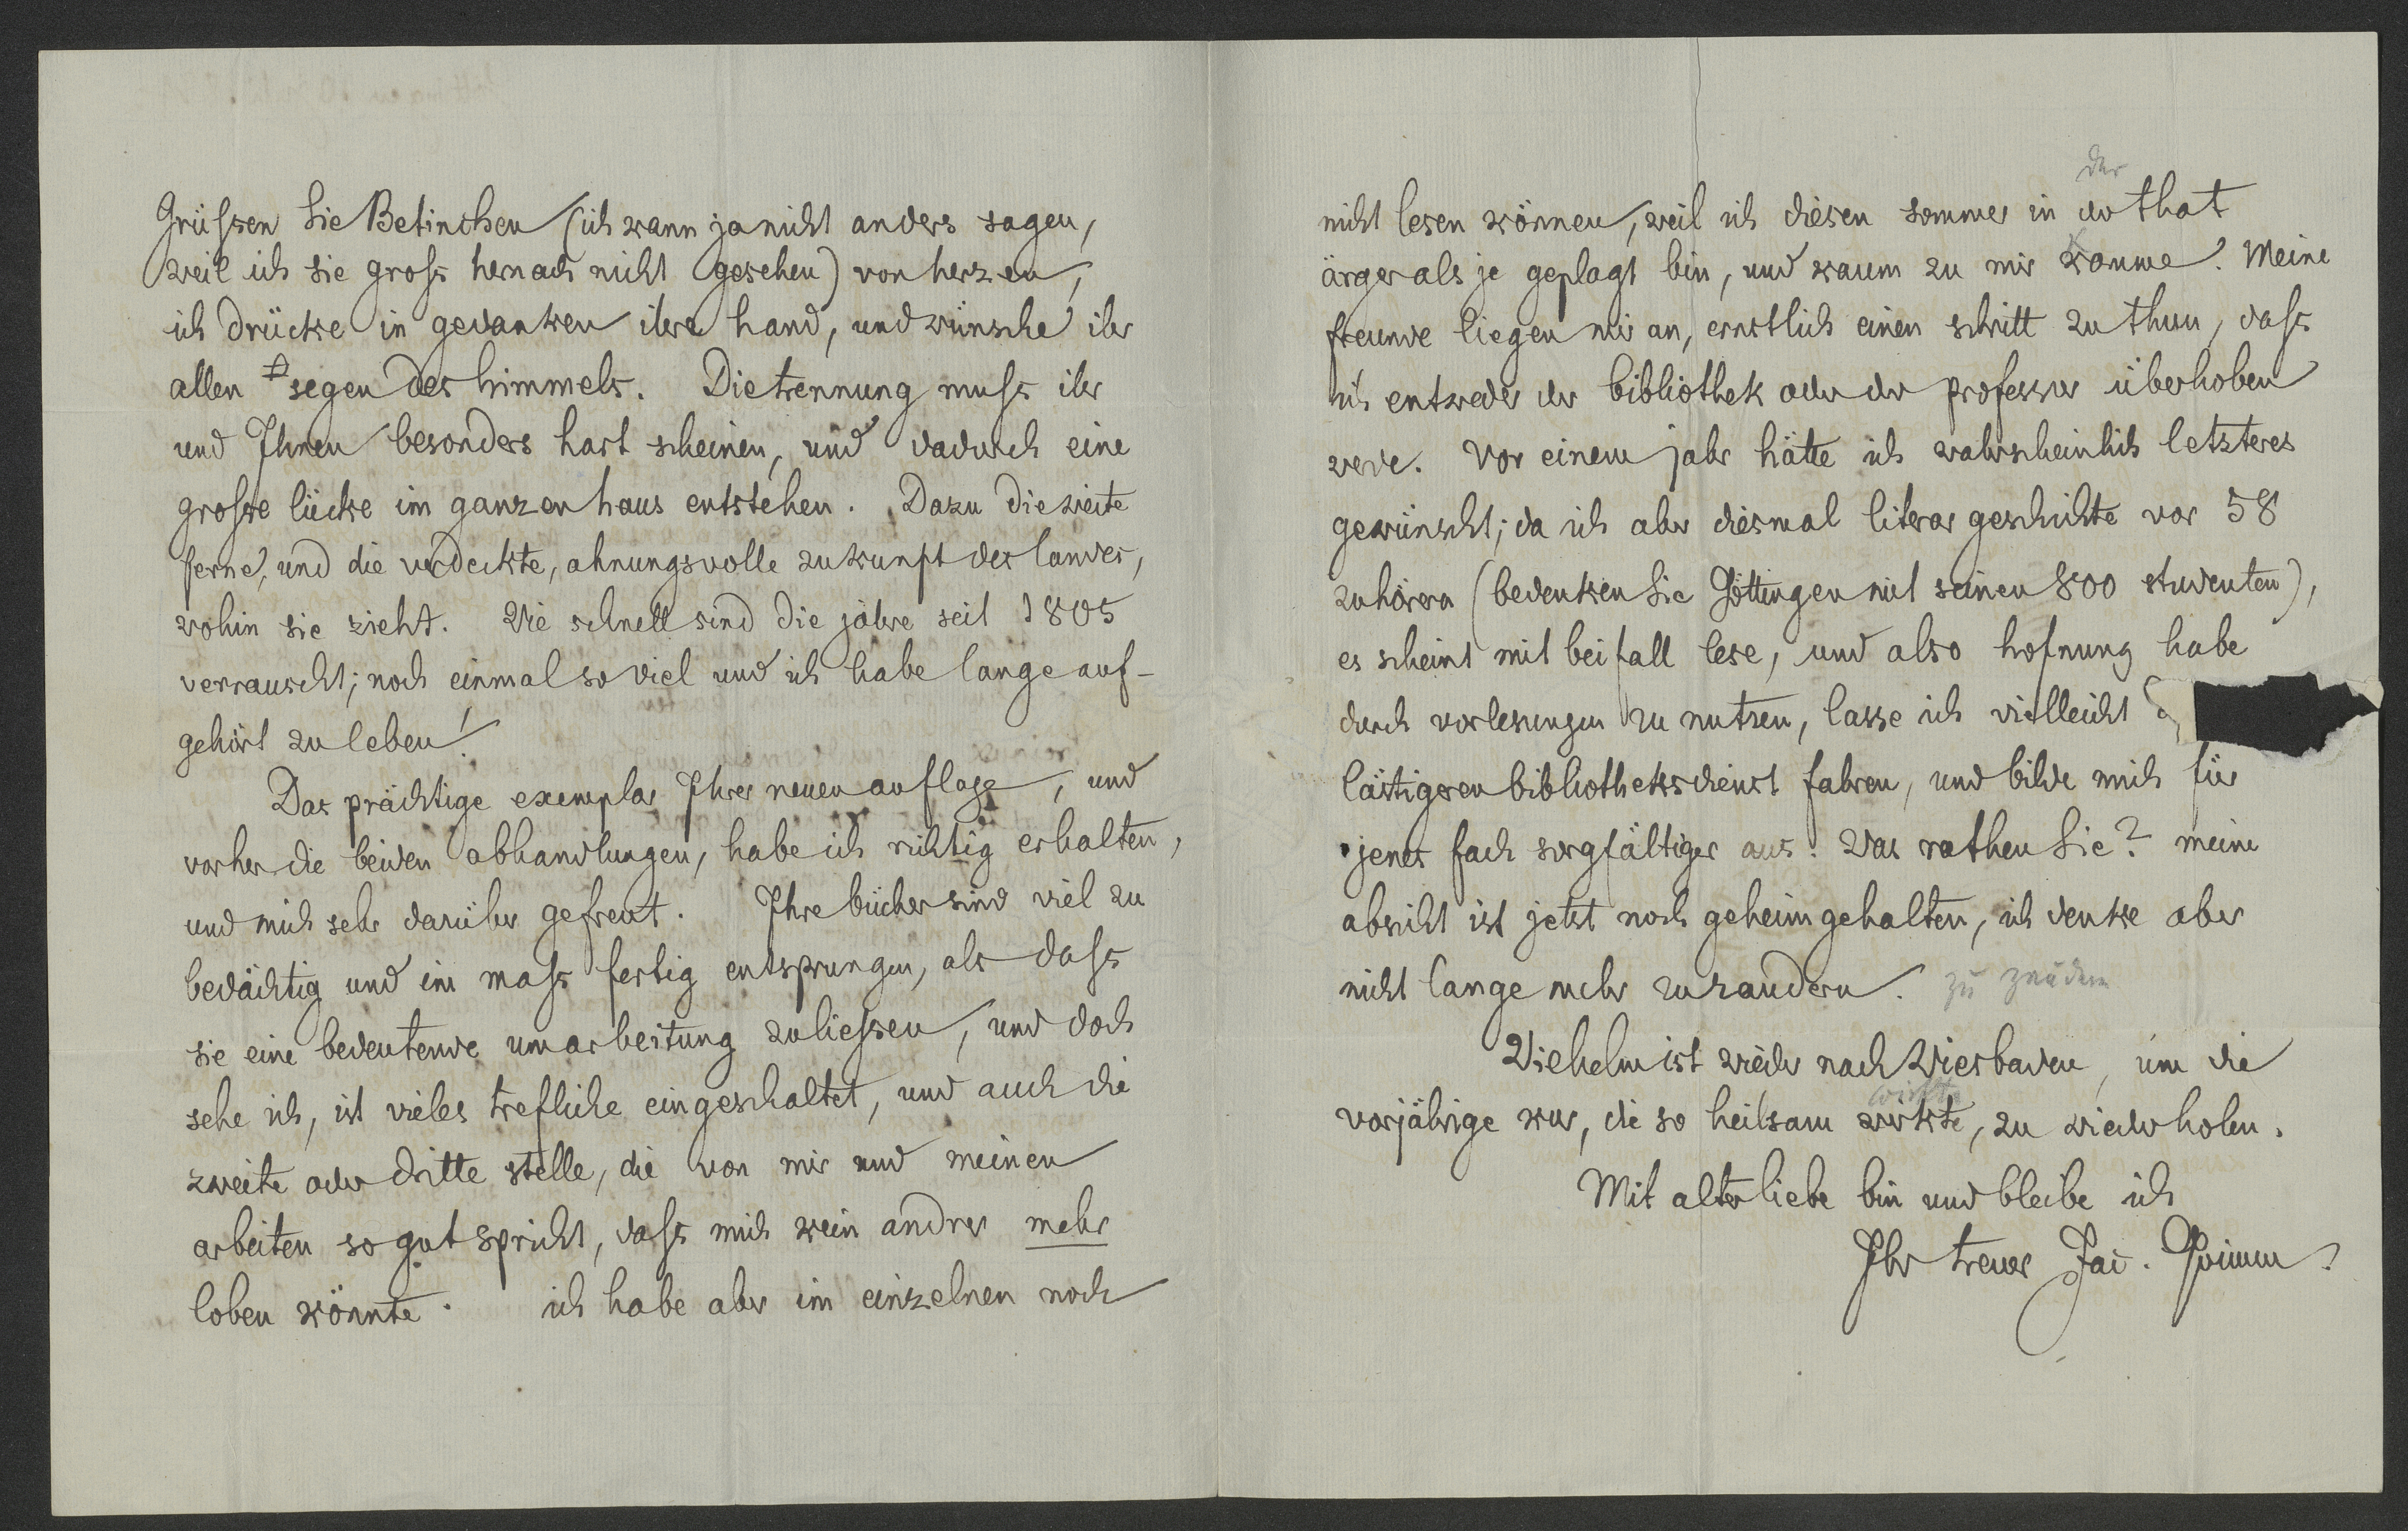 Grüßen Sie Betinchen (ich kann ja nicht anders sagen,
weil ich sie groß hernach nicht gesehen) von herzen,
ich drücke in gedanken ihre hand, und wünsche ihr
allen segen des himmels. Die trennung muß ihr
und Ihnen besonders hart scheinen, und dadurch eine
große lücke im ganzen haus entstehen. Dazu die weite
ferne, und die verdeckte, ahnungsvolle zukunft des landes,
wohin sie zieht. Wie schnell sind die jahre seit 1805
verrauscht; noch einmal so viel und ich habe lange auf-
gehört zu leben!
Das prächtige exemplar Ihrer neuen auflage, und
vorher die beiden abhandlungen, habe ich richtig erhalten,
und mich sehr darüber gefreut. Ihre bücher sind viel zu
bedächtig und im maß fertig entsprungen, als daß
sie eine bedeutende umarbeitung zuließen, und doch
sehe ich, ist vieles trefliche eingeschaltet, und auch die
zweite oder dritte stelle, die von mir und meinen
arbeiten so gut spricht, daß mich kein andrer mehr
loben könnte. ich habe aber im einzelnen noch
der
nicht lesen können, weil ich diesen sommer in der that
ärger als je geplagt bin, und kaum zu mir komme. Meine
freunde liegen mir an, ernstlich einen schritt zu thun, daß
ich entweder der bibliothek oder der professur überhoben
werde. Vor einem jahr hätte ich wahrscheinlich letzteres
gewünscht; da ich aber diesmal literar geschichte vor 58
zuhörern (bedenken Sie Göttingen mit seinen 800 studenten),
es scheint mit beifall lese, und also hofnung habe
durch vorlesungen zu nutzen, lasse ich vielleicht
lästigeren bibliotheksdienst fahren, und bilde mich für
jenes fach sorgfältiger aus. Was rathen Sie? meine
absicht ist jetzt noch geheim gehalten, ich denke aber
nicht lange mehr zu zaudern. zu zaudern
Wilhelm ist wieder nach Wiesbaden, um die
wirkte
vorjährige kur, die so heilsam wirkte, zu wiederholen.
Mit alter liebe bin und bleibe ich
Ihr treuer Jac. Grimm.